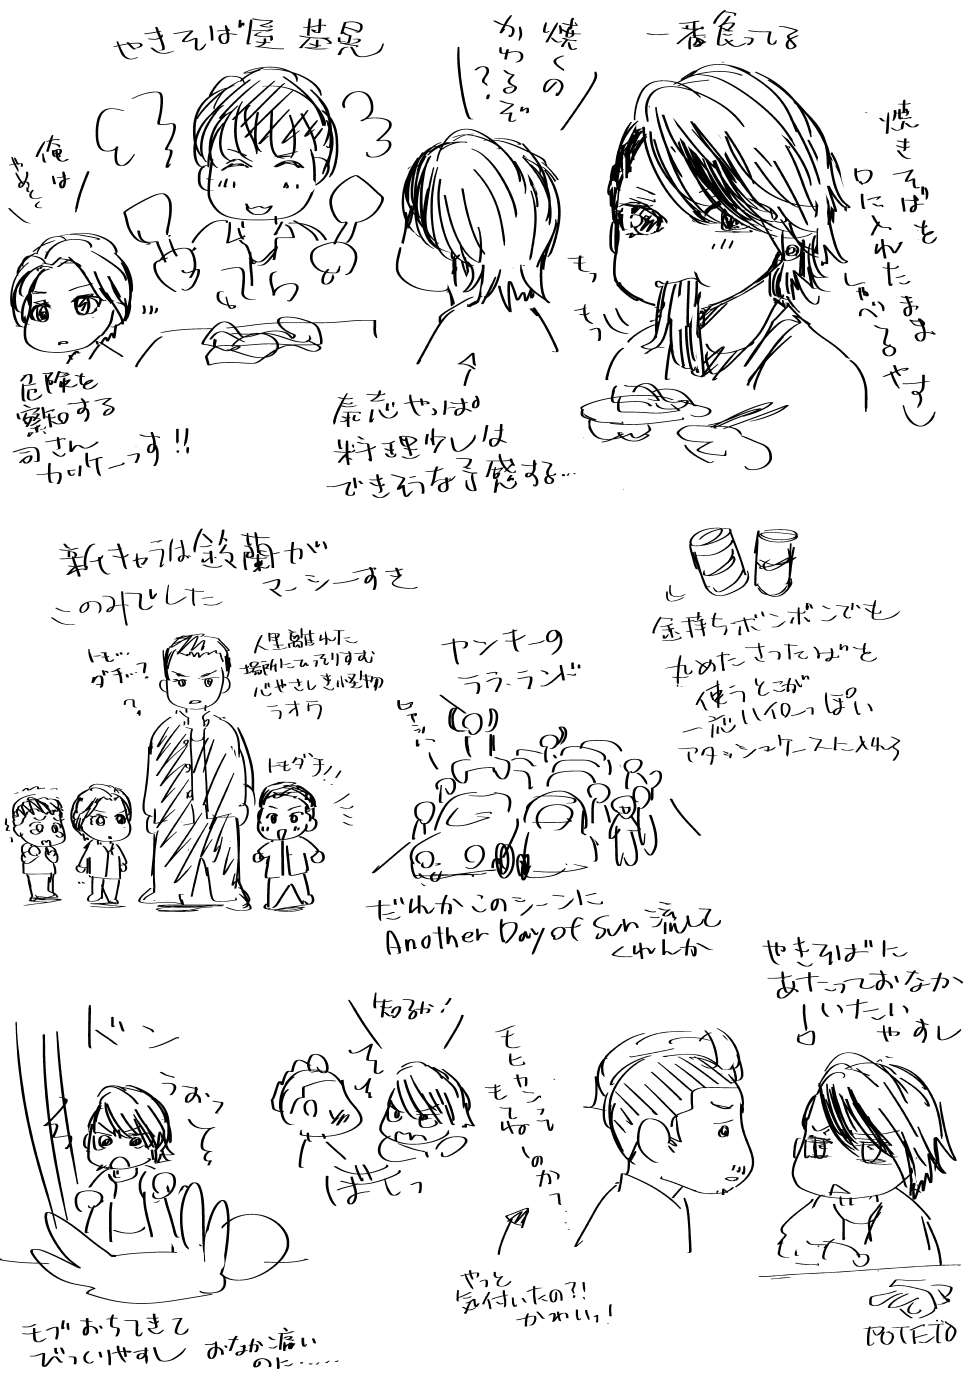 やきそば屋 基晃
焼くの
かわるぞ
?
一番食ってる
焼きそばを
口に入れたまま
しゃべるやすし
俺は
やめとく
もっ
もっ
危険を
察知する
司さん
カッケーっす!!
泰志やっぱ
料理少しは
できそうな予感する…
新キャラは鈴蘭が
このみでした
マーシーすき
トモ…
ダチ…?
?
人里離れた
場所にひっそりすむ
心やさしき怪物
ラオウ
トモダチ!!
ヤンキーの
ララ、ランド
だれかこのシーンに
Another Day of Sun 流して
くれんか
金持ちボンボンでも
丸めたさつたばと
使うとこが
一応ハイローっぽい
アタッシュケースに入れろ
やきそばに
あたっておなか
いたい
やすし
ドン
うおっ
モブおちてきて
びっくりやすし
おなか痛い
のに……
知るか!
ばしっ
モヒカンって
もてねーのかっ…
やっと
気付いたの?!
かわいっ!
POTETO